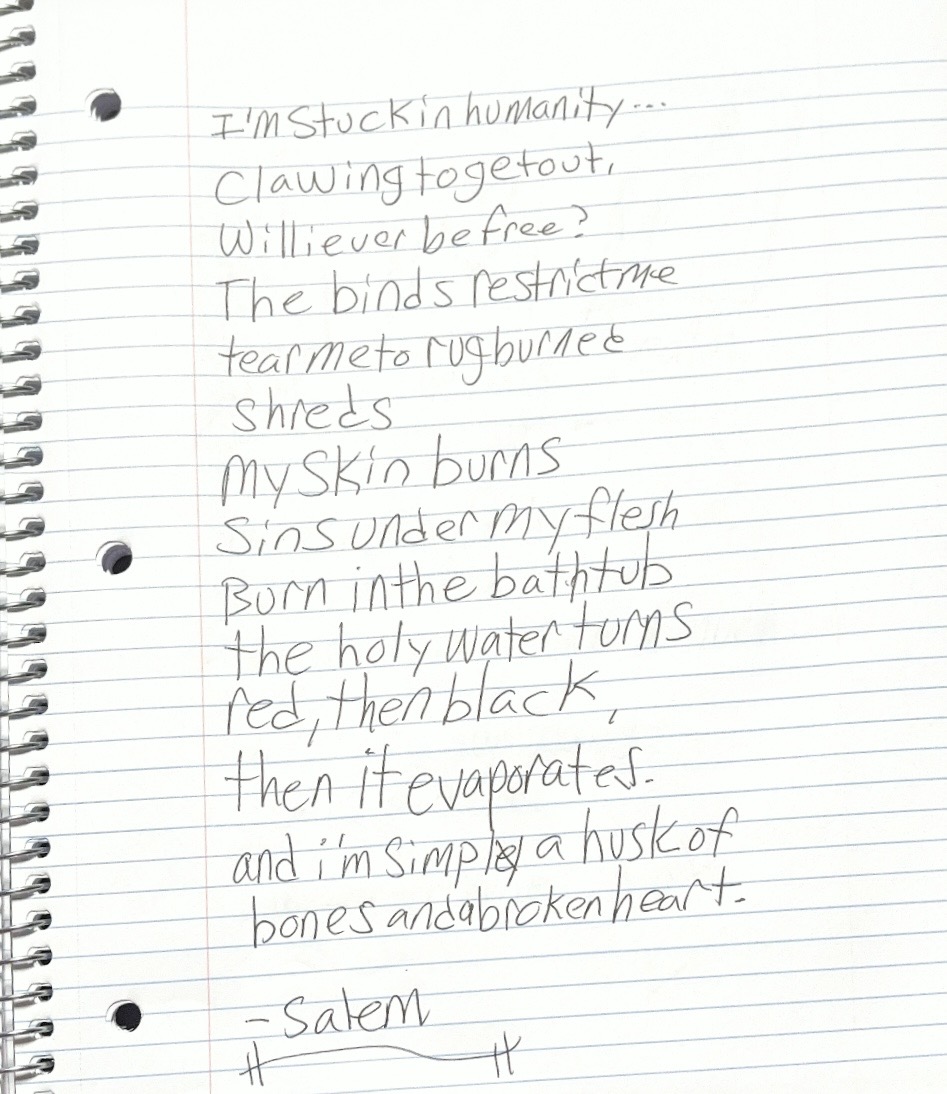 I'm stuck in humanity...
Clawing to get out,
Will i ever be free?
The binds restrict me
tear me to rug burned
shreds
My skin burns
Sins under my flesh
Burn in the bathtub
the holy water turns
red, then black,
then it evaporates.
and i'm simply a husk of
bones and a broken heart.
- Salem